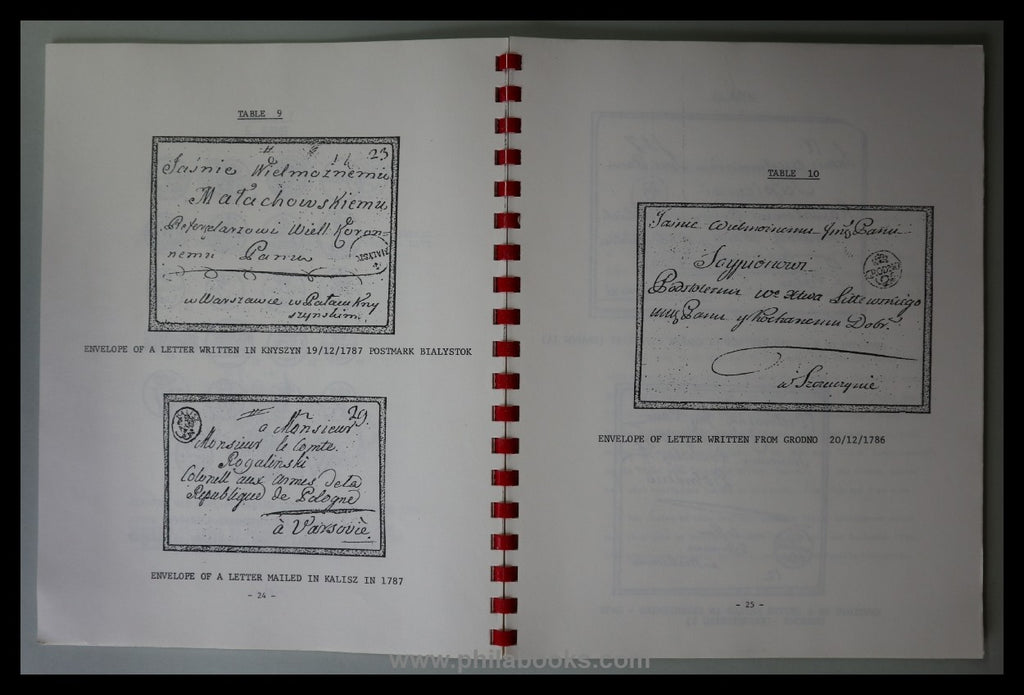 TABLE 9
23
Jaśnie Wielmożnemu
Małachowskiemu
Referendarzowi Wiell Koron-
nemu Panu
BIAŁYSTOK
w Warszawie w Pałacu Kny
szyńskim.
ENVELOPE OF A LETTER WRITTEN IN KNYSZYN 19/12/1787 POSTMARK BIALYSTOK
29.
a Monsieur
Monsieur le Comte
Rogalinski
Colonell aux armes dela
Republique de Pologne
à Varsovie.
ENVELOPE OF A LETTER MAILED IN KALISZ IN 1787
- 24 -
TABLE 10
Jaśnie Wielmożnemu Panu
Scypionowi
GRODNO
Podstolemu Wo Xtwa Littewskiego
Panu y Kochanemu Dobr.
w Szczuczynie
ENVELOPE OF LETTER WRITTEN FROM GRODNO 20/12/1786
- 25 -
www.philabooks.com